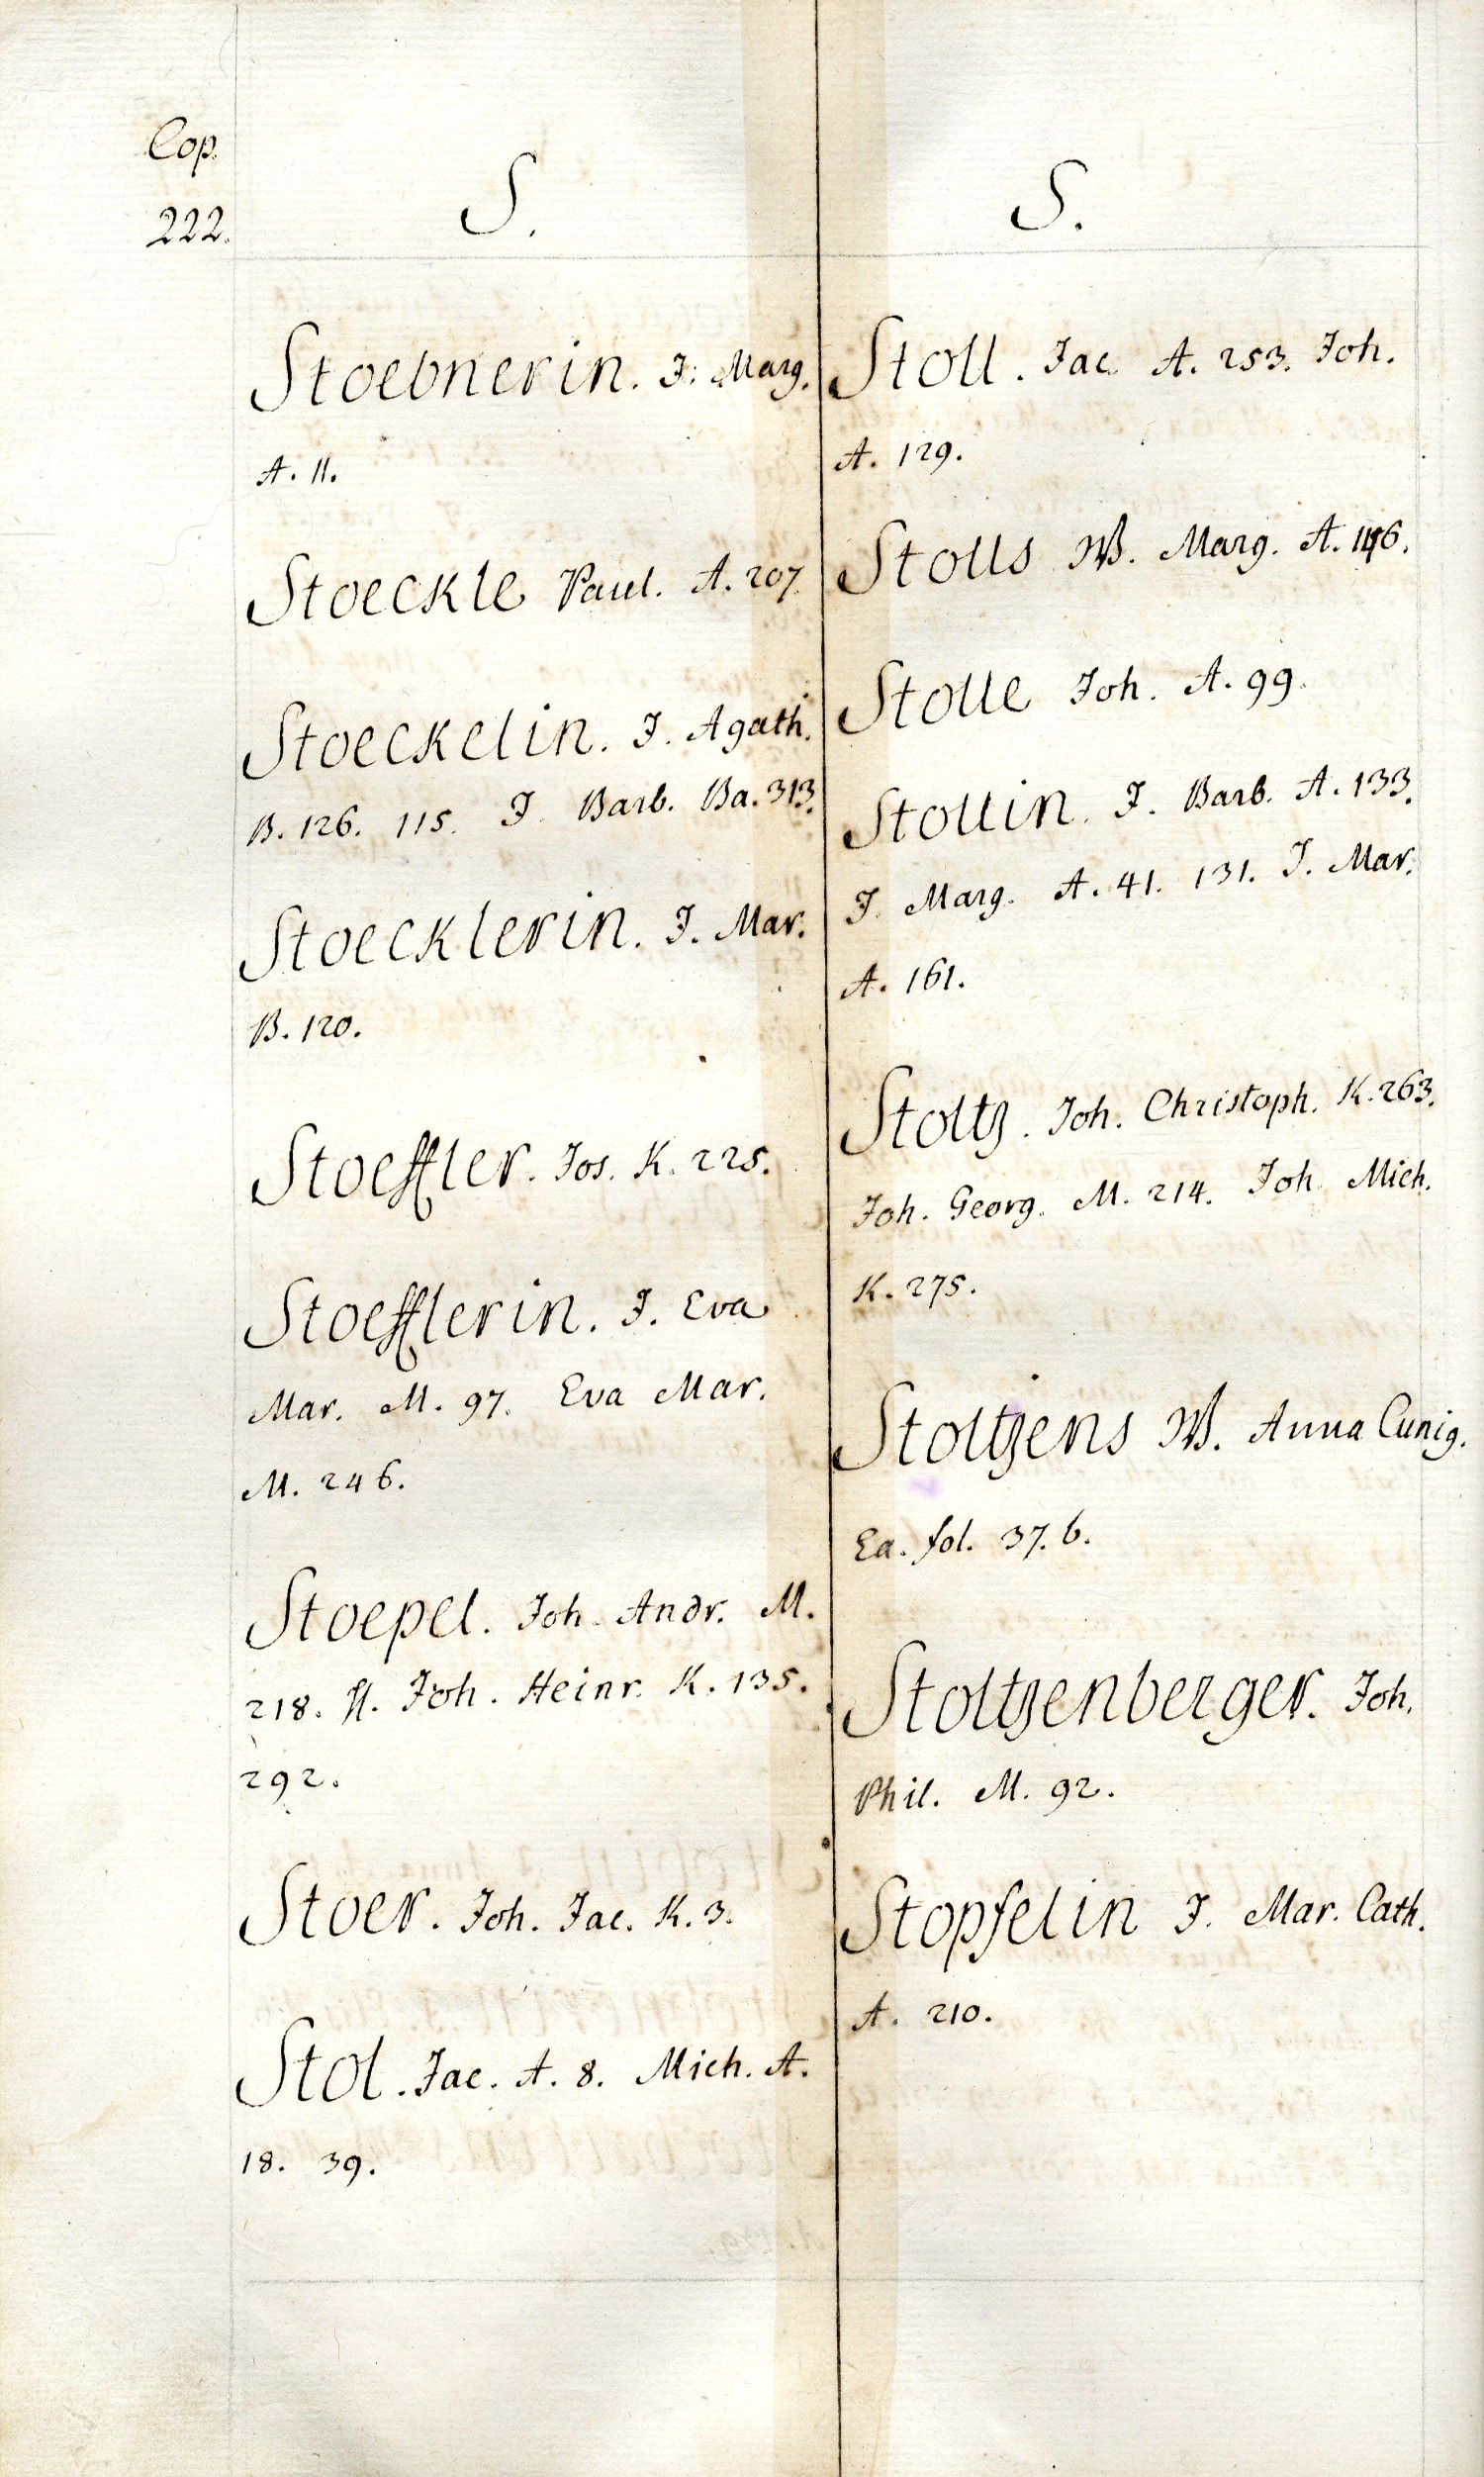 Cop.
222.
S.
Stoebnerin. J. Marg.
A. 11.
Stoeckle Paul. A. 207.
Stoeckelin. J. Agath.
B. 126. 115. J. Barb. Ba. 313.
Stoecklerin. J. Mar.
B. 120.
Stoeffler. Jos. K. 225.
Stoefflerin. J. Eva
Mar. M. 97. Eva Mar.
M. 246.
Stoepel. Joh. Andr. M.
218. H. Joh. Heinr. K. 135.
292.
Stoer. Joh. Jac. K. 3.
Stol. Jac. A. 8. Mich. A.
18. 39.
S.
Stoll. Jac. A. 253. Joh.
A. 129.
Stolls W. Marg. A.
Stolle Joh. A. 99.
Stollin. J. Barb. A. 133.
J. Marg. A. 41. 131. J. Mar.
A. 161.
Stoltz. Joh. Christoph. K. 263.
Joh. Georg. M. 214. Joh. Mich.
K. 275.
Stoltzens W. Anna Cunig.
Ea. fol. 37. b.
Stoltzenberger. Joh.
Phil. M. 92.
Stopfelin J. Mar. Cath.
A. 210.